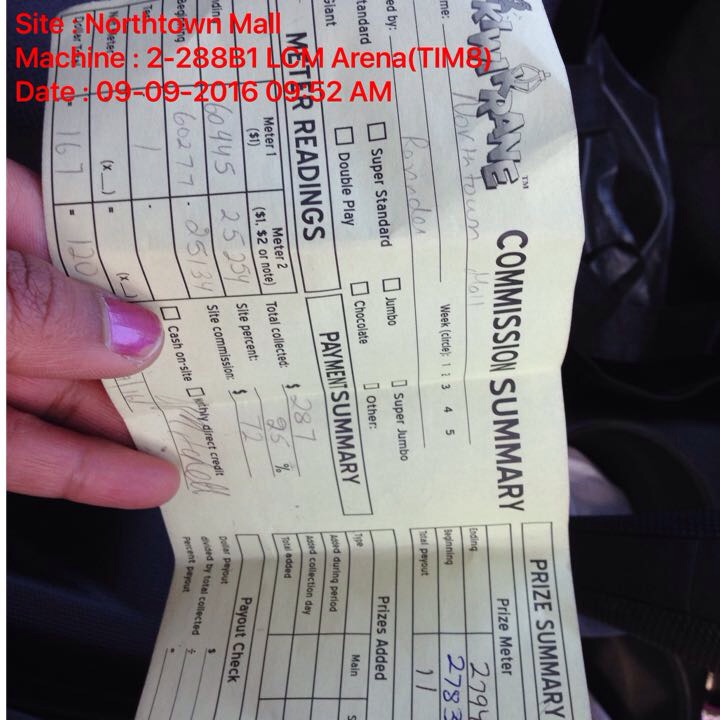 Site : Northtown Mall
Machine : 2-288B1 LCM Arena(TIM8)
Date : 09-09-2016 09:52 AM
KRANE™
COMMISSION SUMMARY
Northtown Mall
Week (circle): 1 2 3 4 5
Super Standard
Jumbo
Super Jumbo
Double Play
Chocolate
Other:
METER READINGS
Meter 1 ($1)
Meter 2 ($1, $2 or note)
60445 25254
60277 25134
1
(x__) = (x__)
167 = 120
PAYMENT SUMMARY
Total collected: $ 287
Site percent: 25 %
Site commission: $ 72
Cash on-site
direct credit
PRIZE SUMMARY
Prize Meter
Ending 2794
Beginning 2783
Total payout 11
Prizes Added
Type Main
Added during period
Added collection day
Total added
Payout Check
Dollar payout $
divided by total collected ÷
Percent payout =